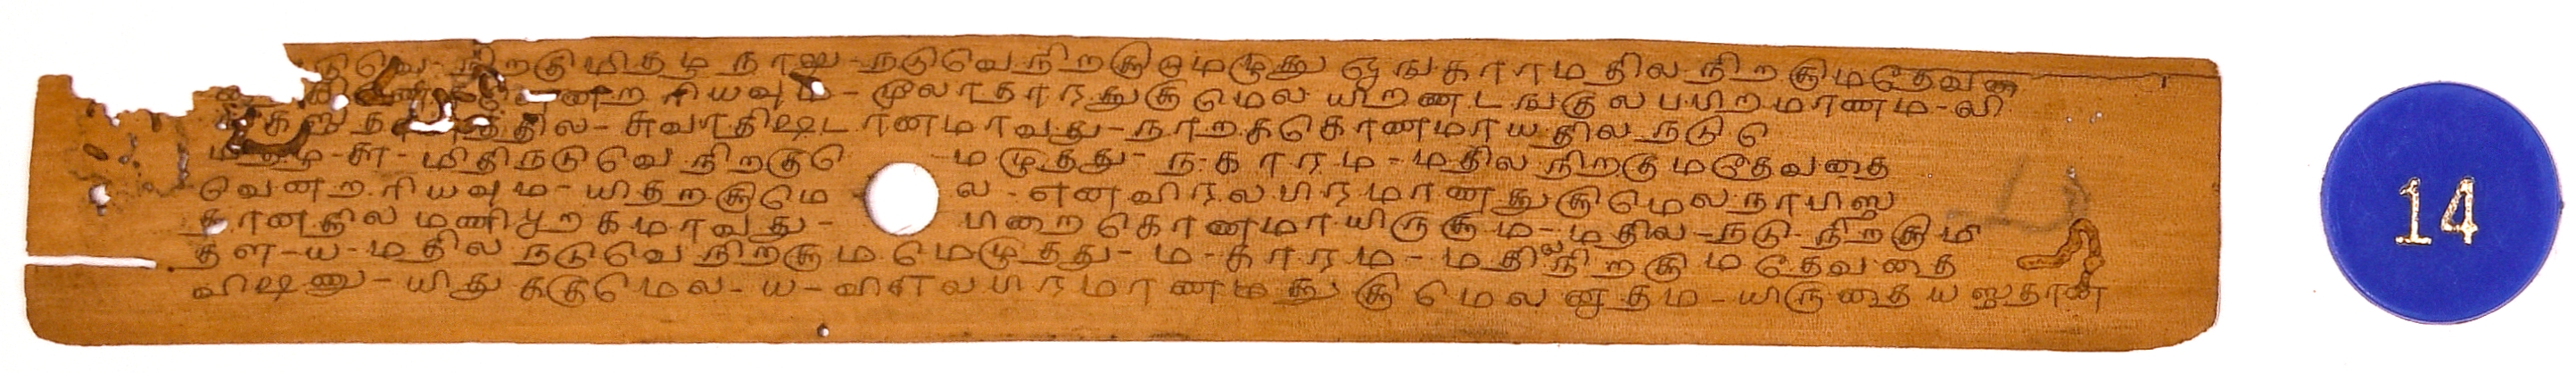 டுவெ-நிறகுமிதழ நாலு-நடுவெநிறகுமெழுத்து ஓங்காரம தில நிறகுமதேவதை
னறறியவும-மூலாதாரத்துக்கு மெல யிரணடங்குல பயிறமாணம-லி
தில-சுவாதிஷ்டானமாவது-நாறகொணமாயதில நடு வெ
மிதிநடுவெ நிறகுமெ மழுத்து-ந-காரம-மதில நிறகுமதேவதை
வெனறறியவும-யிதறகுமெ ல-எனவிரலபிரமாணத்துக்குமெலநாபிஸ
தானத்தில மணிபூறகமாவது- பிறை கொணமாயிருக்கும-மதில-நடு-நிறகுமி
தள-ய-மதில நடுவெ நிறகுமமெழுத்து-ம-காரம-மதிலநிறகும தேவதை
விஷணு-யிதுககுமெல-ய-விரலபிரமாணமத்துக்கு மெல னுதம-யிருதைய ஸதான
14